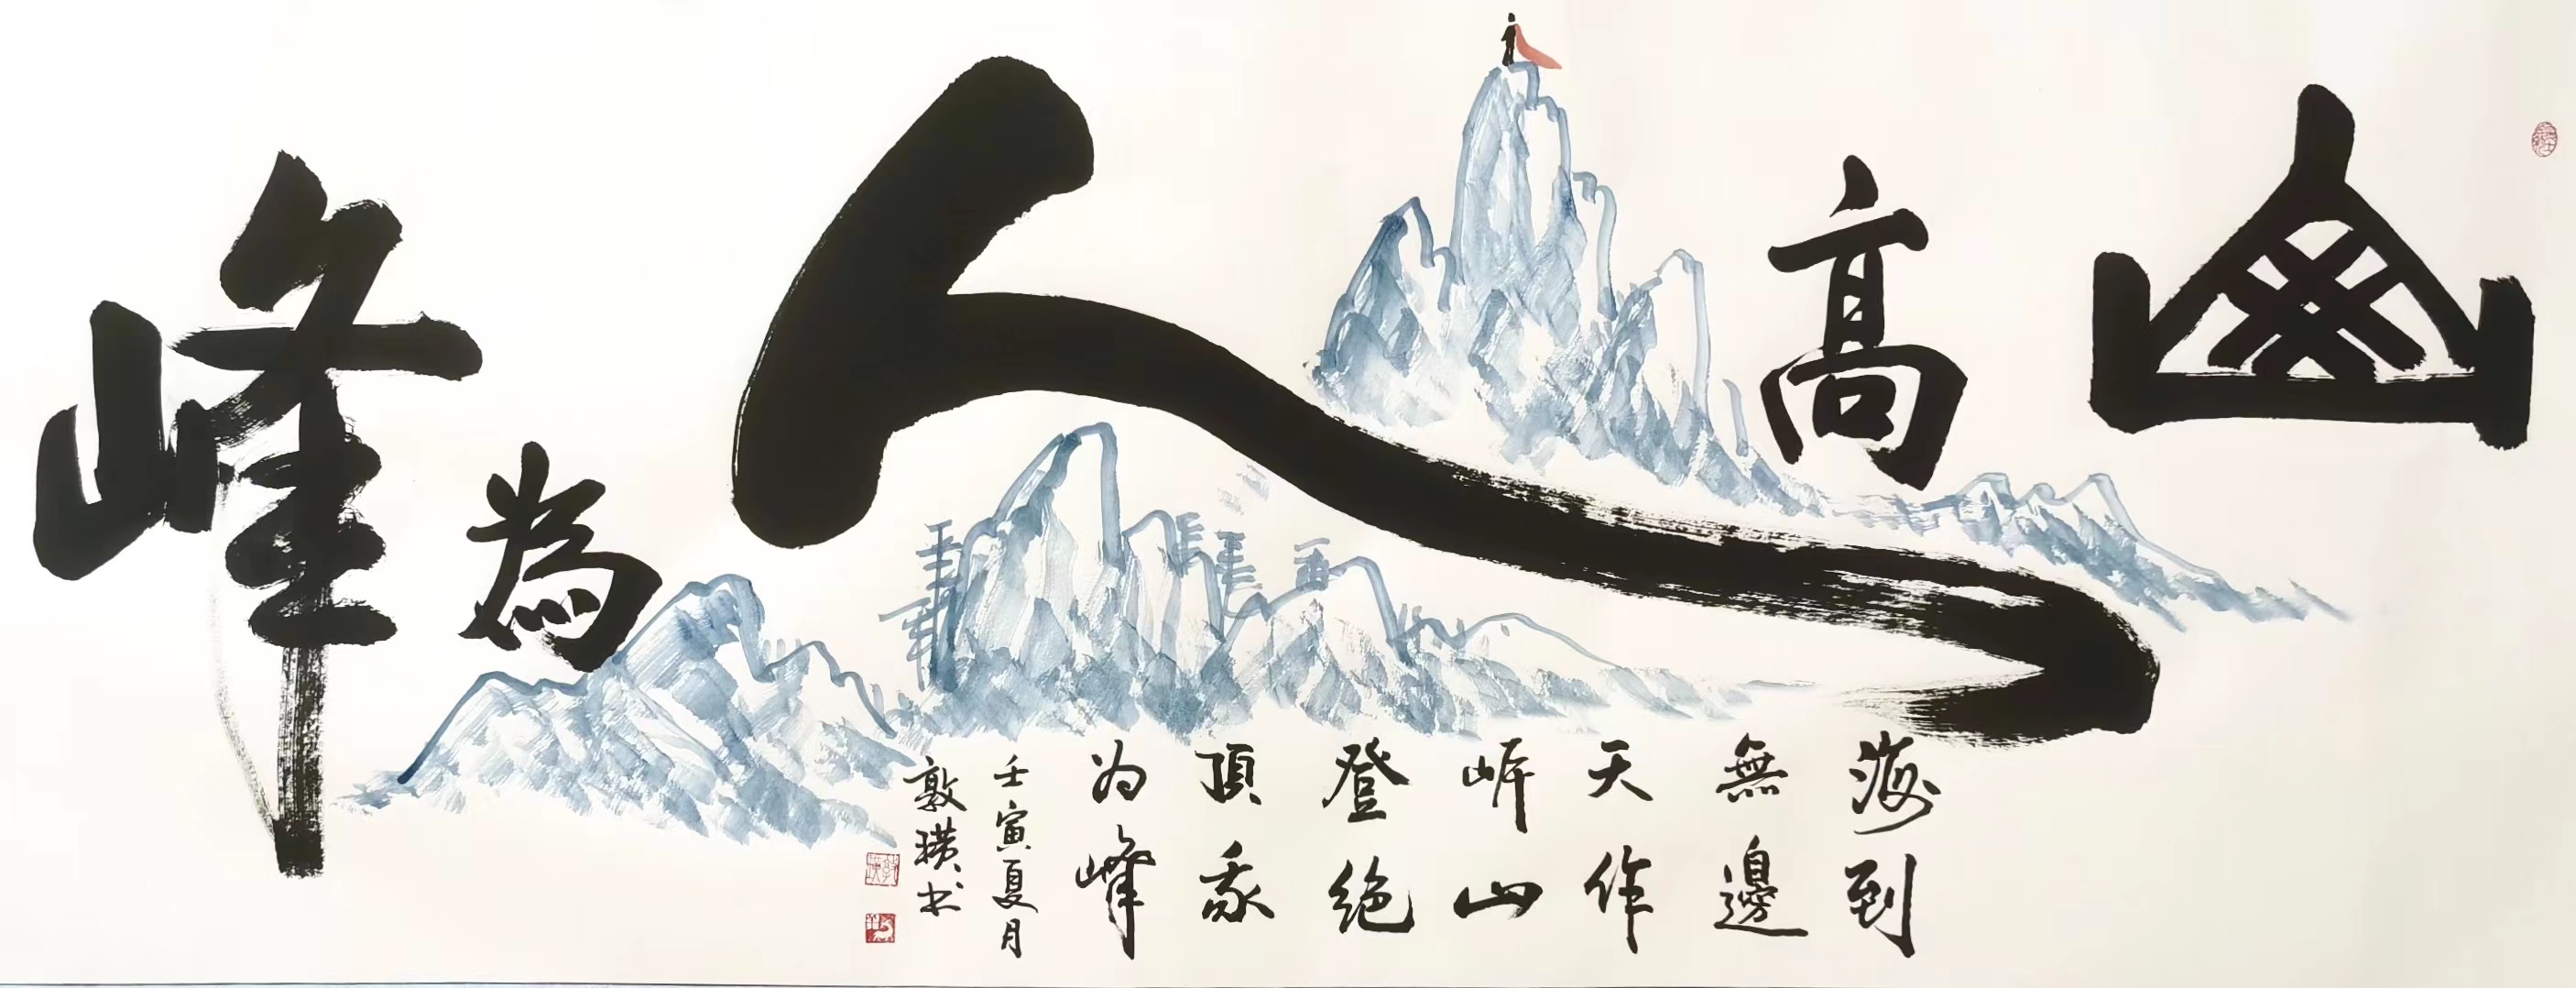 山高人為峰
海到
無邊
天作
岸山
登絶
頂我
为峰
壬寅夏月
敦璜书